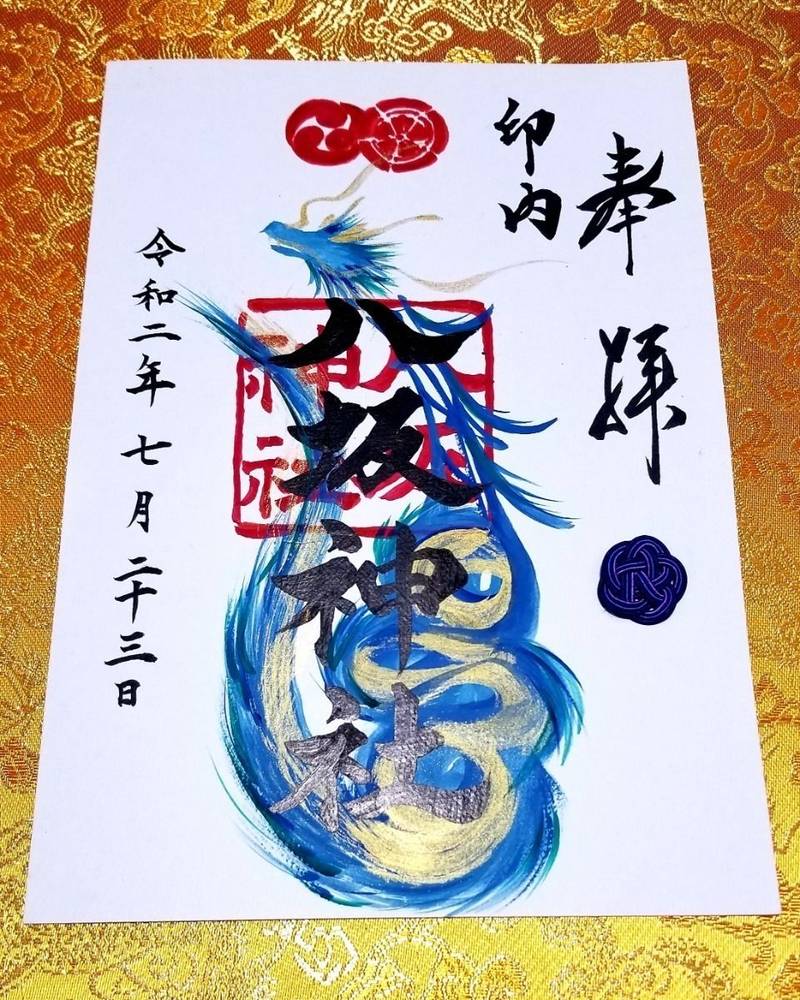 奉拝
印内
八坂神社
令和二年七月二十三日